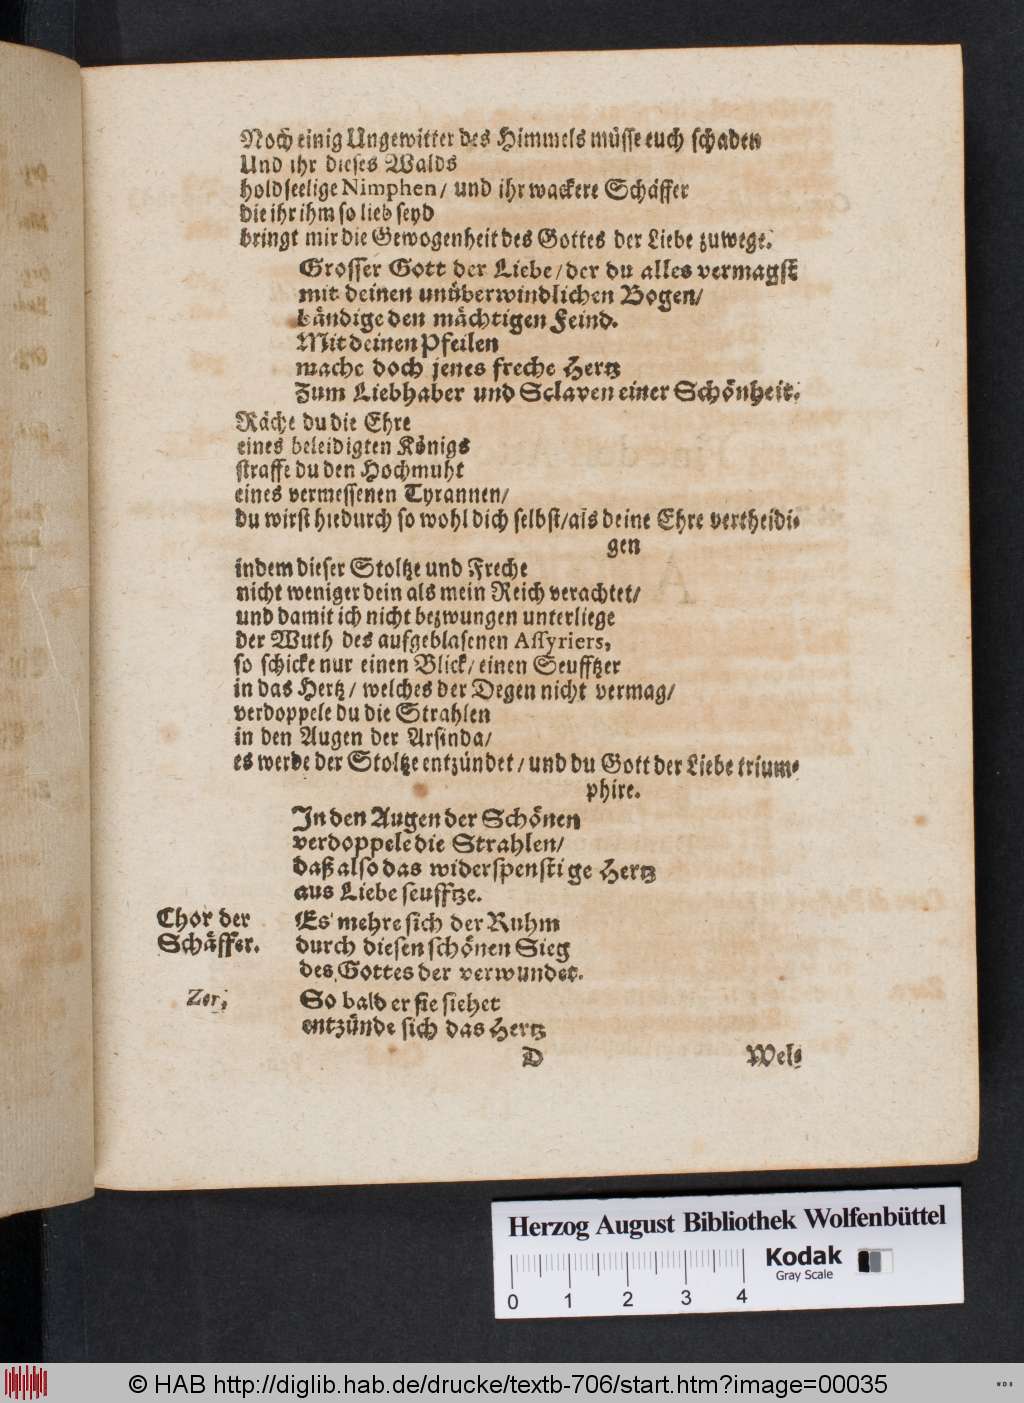 Noch einig Ungewitter des Himmels müsse euch schaden
Und ihr dieses Walds
holdseelige Nimphen/ und ihr wackere Schäffer
die ihr ihm so lieb seyd
bringt mir die Gewogenheit des Gottes der Liebe zuwege.
Grosser Gott der Liebe/der du alles vermagst
mit deinen unüberwindlichen Bogen/
bändige den mächtigen Feind.
Mit deinen Pfeilen
mache doch jenes freche Hertz
Zum Liebhaber und Sclaven einer Schönheit.
Räche du die Ehre
eines beleidigten Königs
straffe du den Hochmuht
eines vermessenen Tyrannen/
du wirst hiedurch so wohl dich selbst/als deine Ehre vertheidi-
gen
indem dieser Stoltze und Freche
nicht weniger dein als mein Reich verachtet/
und damit ich nicht bezwungen unterliege
der Wuth des aufgeblasenen Assyriers,
so schicke nur einen Blick/ einen Seufftzer
in das Hertz/ welches der Degen nicht vermag/
verdoppele du die Strahlen
in den Augen der Arsinda/
es werde der Stoltze entzündet/ und du Gott der Liebe trium-
phire.
In den Augen der Schönen
verdoppele die Strahlen/
daß also das widerspenstige Hertz
aus Liebe seufftze.
Chor der Schäffer. Es mehre sich der Ruhm
durch diesen schönen Sieg
des Gottes der verwundet.
Zer. So bald er sie siehet
entzünde sich das Hertz
D Wel-
Herzog August Bibliothek Wolfenbüttel
Kodak
Gray Scale
0 1 2 3 4
© HAB http://diglib.hab.de/drucke/textb-706/start.htm?image=00035